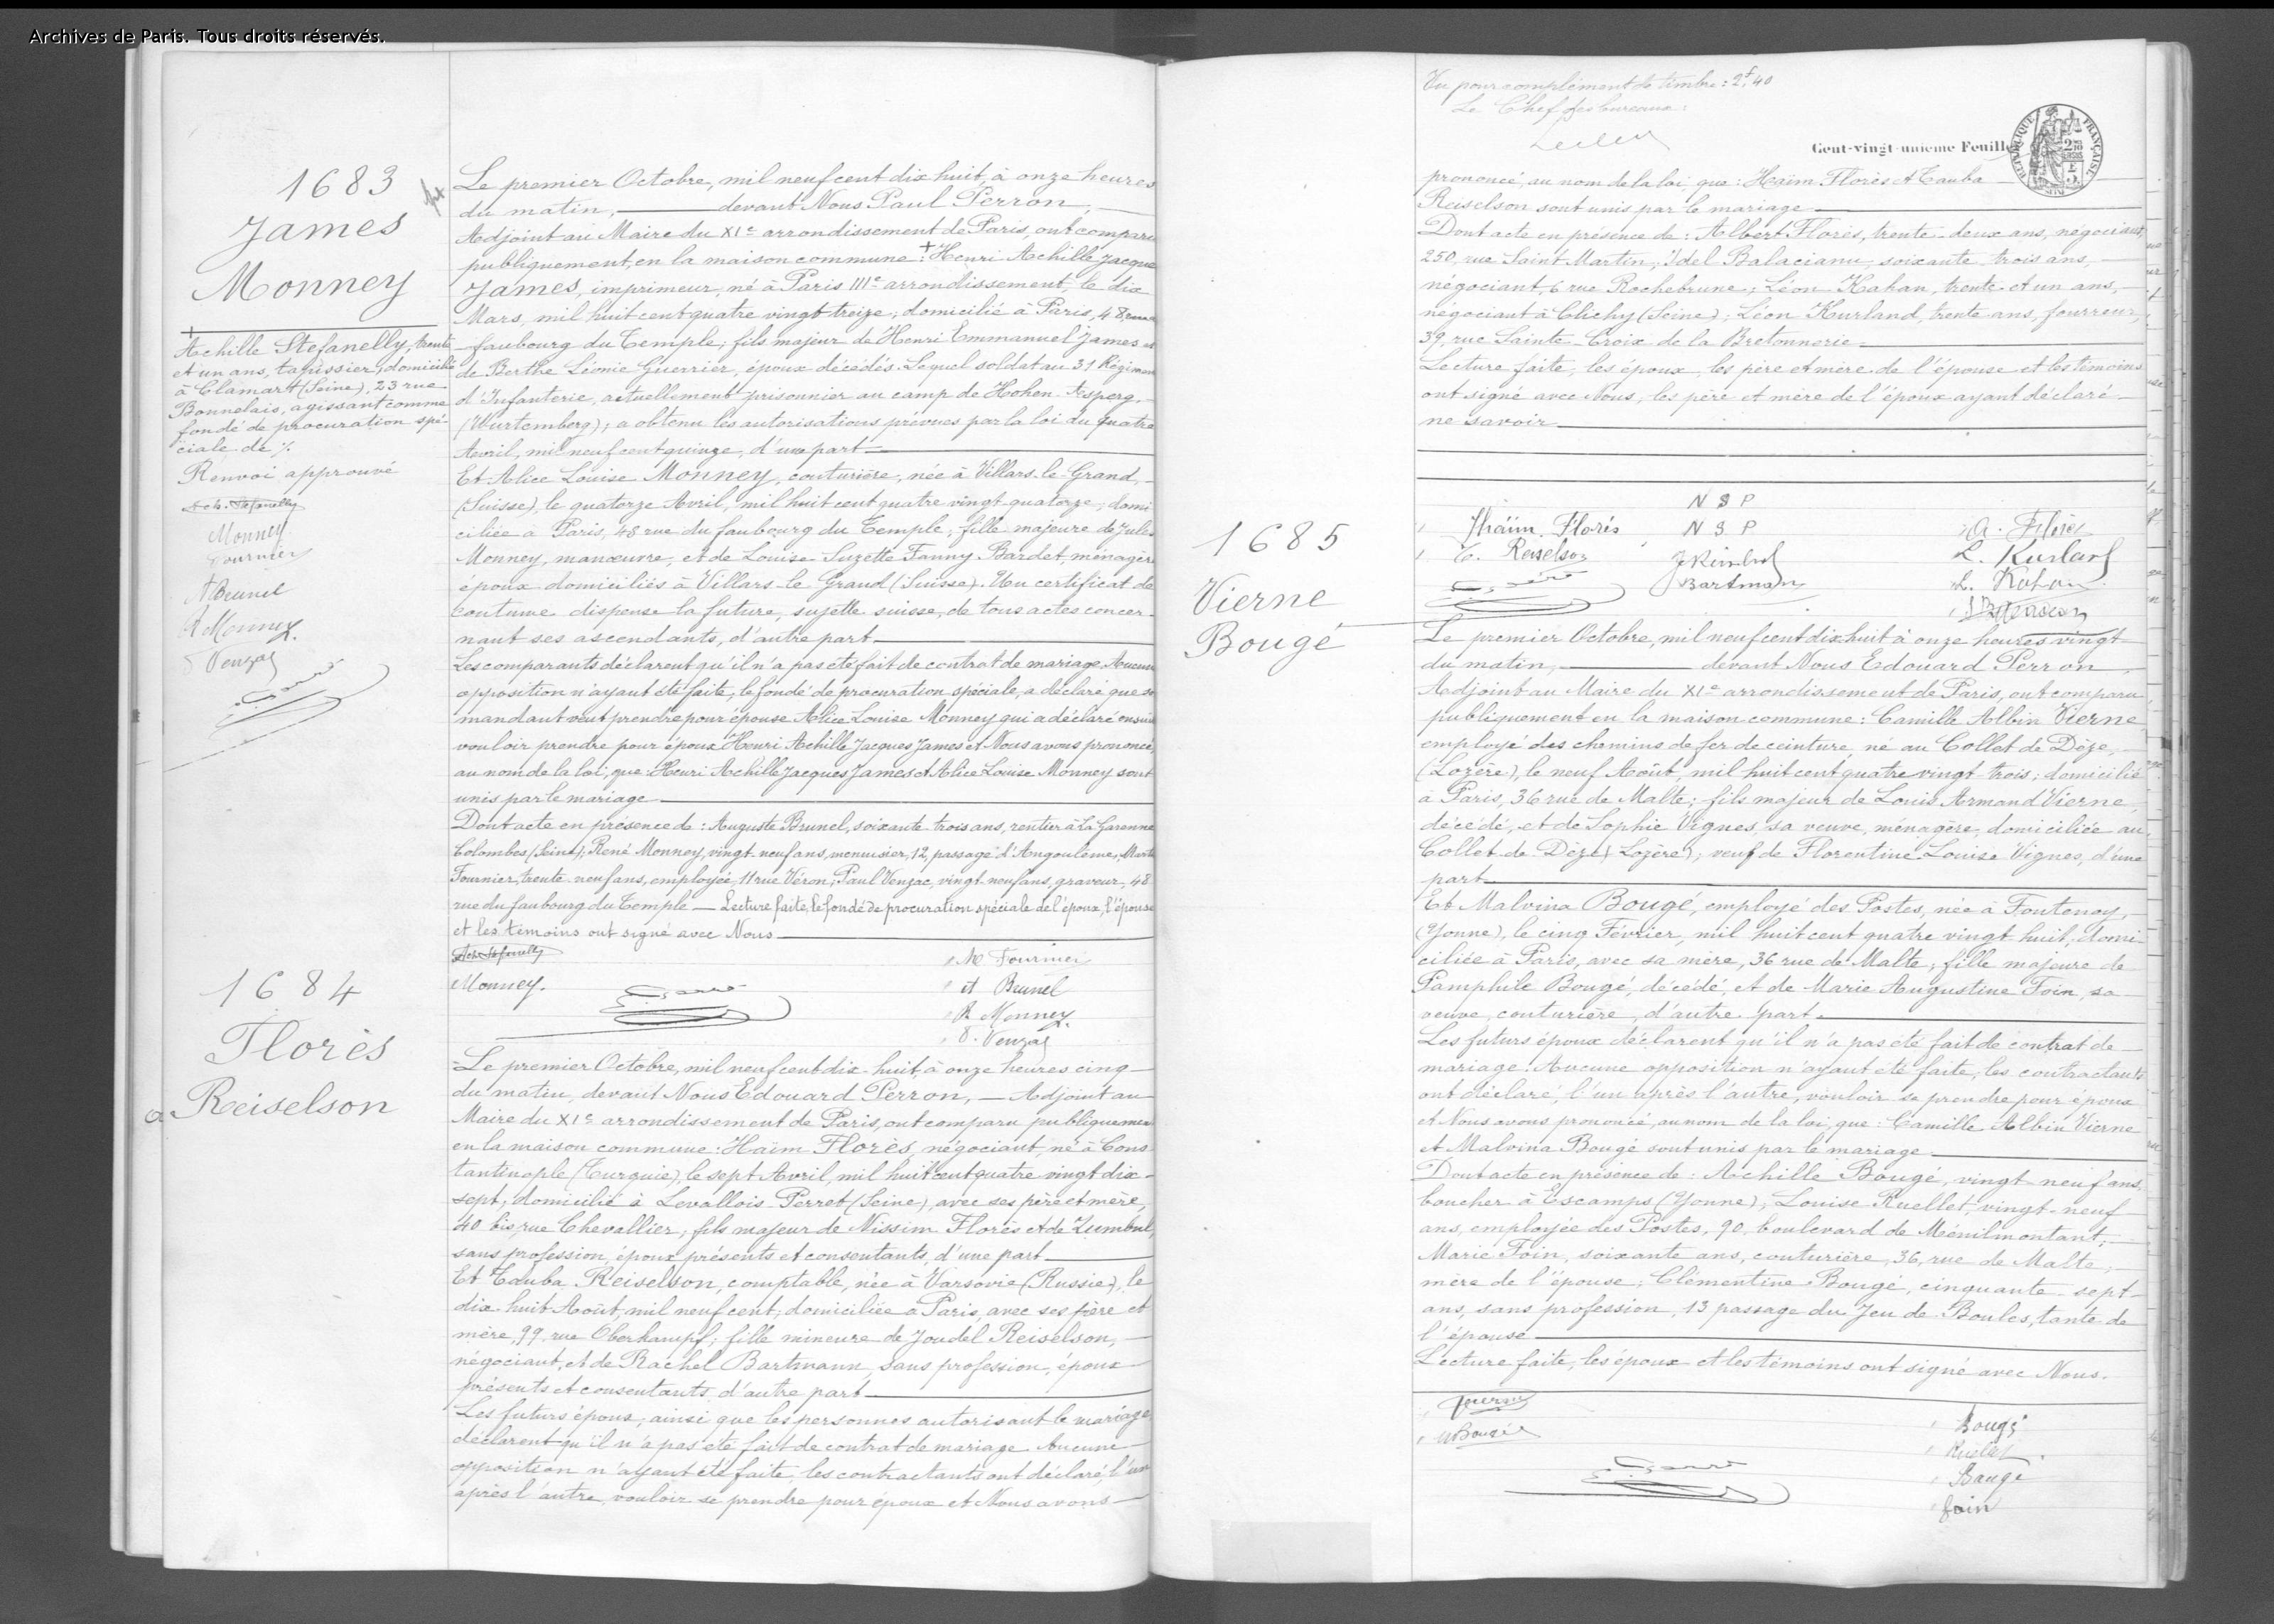 Archives de Paris. Tous droits réservés.
1683
James
Monney
+
Achille Stefanelly, trente
et un ans, tapissier, domicilié
à Clamart (Seine), 23 rue
Bonnelais, agissant comme
fondé de procuration spé-
ciale de
Renvoi approuvé
Ach. Stefanelly
Monney
Fournier
A Brunel
R Monney
Venzac
Le premier Octobre, mil neuf cent dix huit, à onze heures
du matin, devant Nous Paul Perron,
Adjoint au Maire du XIe arrondissement de Paris, ont comparu
publiquement, en la maison commune : + Henri Achille Jacques
James, imprimeur, né à Paris IIIe arrondissement, le dix
Mars, mil huit cent quatre vingt treize ; domicilié à Paris, 48, rue
faubourg du Temple ; fils majeur de Henri Emmanuel James et
de Berthe Léonie Guerrier, époux décédés. Lequel soldat au 31 Régiment
d'Infanterie, actuellement prisonnier au camp de Hohen-Asperg,
(Wurtemberg) ; a obtenu les autorisations prévues par la loi du quatre
Avril, mil neuf cent quinze, d'une part
Et Alice Louise Monney, couturière, née à Villars-le-Grand,
(Suisse), le quatorze Avril, mil huit cent quatre vingt quatorze ; domi
ciliée à Paris, 48 rue du faubourg du Temple ; fille majeure de Jules
Monney, manœuvre, et de Louise Suzette Fanny Bardet, ménagère
époux domiciliés à Villars-le-Grand (Suisse). Un certificat de
coutume dispense la future, sujette suisse, de tous actes concer-
nant ses ascendants, d'autre part
Les comparants déclarent qu'il n'a pas été fait de contrat de mariage. Aucune
opposition n'ayant été faite, le fondé de procuration spéciale, a déclaré que son
mandant veut prendre pour épouse Alice Louise Monney qui a déclaré ensuite
vouloir prendre pour époux Henri Achille Jacques James et Nous avons prononcé,
au nom de la loi, que : Henri Achille Jacques James et Alice Louise Monney sont
unis par le mariage
Dont acte en présence de : Auguste Brunel, soixante trois ans, rentier à La Garenne
Colombes (Seine) ; René Monney, vingt-neuf ans, menuisier, 12, passage d'Angoulême, Marthe
Fournier, trente neuf ans, employée, 11 rue Véron ; Paul Venzac, vingt-neuf ans, graveur, 48
rue du faubourg du Temple — Lecture faite, le fondé de procuration spéciale de l'époux, l'épouse
et les témoins ont signé avec Nous
Ach. Stefanelly
Monney.
M Fournier
A Brunel
R Monney.
P. Venzac
1684
Florès
Reiselson
Le premier Octobre, mil neuf cent dix-huit, à onze heures cinq
du matin, devant Nous Edouard Perron, — Adjoint au
Maire du XIe arrondissement de Paris, ont comparu publiquement
en la maison commune : Haïm Florès, négociant, né à Cons
tantinople (Turquie), le sept Avril, mil huit cent quatre vingt dix-
sept, domicilié à Levallois-Perret (Seine), avec ses père et mère,
40 bis, rue Chevallier ; fils majeur de Nissim Florès et de Zumbul,
sans profession, époux présents et consentants, d'une part
Et Tauba Reiselson, comptable, née à Varsovie (Russie), le
dix-huit Août, mil neuf cent ; domiciliée à Paris, avec ses père et
mère, 99, rue Oberkampf ; fille mineure de Joudel Reiselson,
négociant, et de Rachel Bartmann, sans profession, époux
présents et consentants, d'autre part
Les futurs époux, ainsi que les personnes autorisant le mariage,
déclarent qu'il n'a pas été fait de contrat de mariage. Aucune
opposition n'ayant été faite, les contractants ont déclaré, l'un
après l'autre, vouloir se prendre pour époux et Nous avons
Vu pour complément de timbre : 2f,40
Le Chef des bureaux :
Cent-vingt-unième Feuille
RÉPUBLIQUE FRANÇAISE
prononcé, au nom de la loi, que : Haïm Florès et Tauba
Reiselson sont unis par le mariage
Dont acte en présence de : Albert Florès, trente-deux ans, négociant,
250, rue Saint-Martin ; Idel Balacianu, soixante trois ans,
négociant, 6 rue Rochebrune ; Léon Kahan, trente et un ans,
négociant à Clichy (Seine) ; Léon Kurland, trente ans, fourreur,
39, rue Sainte-Croix de la Bretonnerie
Lecture faite, les époux, les père et mère de l'épouse et les témoins
ont signé avec Nous, les père et mère de l'époux ayant déclaré
ne savoir
N S P
Jhaïm Florès N S P A. Florès
T. Reiselson L. Kurland
Bartman L. Kahan
1685
Vierne
Bougé
Le premier Octobre, mil neuf cent dix huit à onze heures vingt
du matin, devant Nous Edouard Perron,
Adjoint au Maire du XIe arrondissement de Paris, ont comparu
publiquement en la maison commune : Camille Albin Vierne
employé des chemins de fer de ceinture, né au Collet de Dèze,
(Lozère), le neuf Août, mil huit cent quatre vingt-trois ; domicilié
à Paris, 36 rue de Malte ; fils majeur de Louis Armand Vierne,
décédé, et de Sophie Vignes, sa veuve, ménagère, domiciliée au
Collet-de-Dèze (Lozère) ; veuf de Florentine Louise Vignes, d'une
part
Et Malvina Bougé, employé des Postes, née à Fontenoy,
(Yonne), le cinq Février, mil huit cent quatre vingt huit, domi-
ciliée à Paris, avec sa mère, 36 rue de Malte ; fille majeure de
Pamphile Bougé, décédé, et de Marie Augustine Foin, sa
veuve, couturière, d'autre part.
Les futurs époux déclarent qu'il n'a pas été fait de contrat de
mariage. Aucune opposition n'ayant été faite, les contractants
ont déclaré, l'un après l'autre, vouloir se prendre pour époux
et Nous avons prononcé, au nom de la loi, que : Camille Albin Vierne
et Malvina Bougé sont unis par le mariage
Dont acte en présence de : Achille Bougé, vingt-neuf ans,
boucher à Escamps (Yonne) ; Louise Ruellet, vingt-neuf
ans, employée des Postes, 90, boulevard de Ménilmontant ;
Marie Foin, soixante ans, couturière, 36, rue de Malte,
mère de l'épouse ; Clémentine Bougé, cinquante-sept
ans, sans profession, 13 passage du Jeu de Boules, tante de
l'épouse
Lecture faite, les époux et les témoins ont signé avec Nous.
Vierne
M Bougé
Bougé
Ruellet
Bougé
Foin